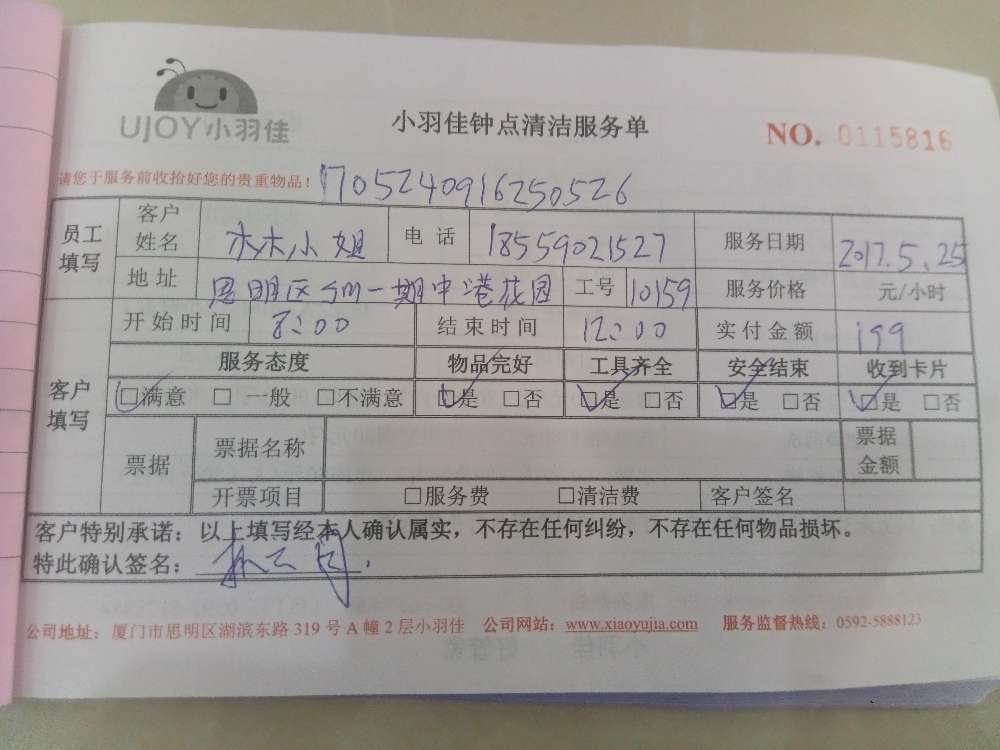 UJOY小羽佳
小羽佳钟点清洁服务单
NO. 0115816
请您于服务前收拾好您的贵重物品!
1705240916250526
员工填写
客户姓名 林小姐 电话 18559021527 服务日期 2017.5.25
地址 思明区sm一期中港花园 工号 10159 服务价格 元/小时
客户填写
开始时间 8:00 结束时间 12:00 实付金额 199
服务态度 物品完好 工具齐全 安全结束 收到卡片
☑满意 □一般 □不满意 ☑是 □否 ☑是 □否 ☑是 □否 ☑是 □否
票据 票据名称 票据金额
开票项目 □服务费 □清洁费 客户签名
客户特别承诺:以上填写经本人确认属实,不存在任何纠纷,不存在任何物品损坏。
特此确认签名:
公司地址:厦门市思明区湖滨东路 319 号 A 幢 2 层小羽佳 公司网站:www.xiaoyujia.com 服务监督热线:0592-5888123